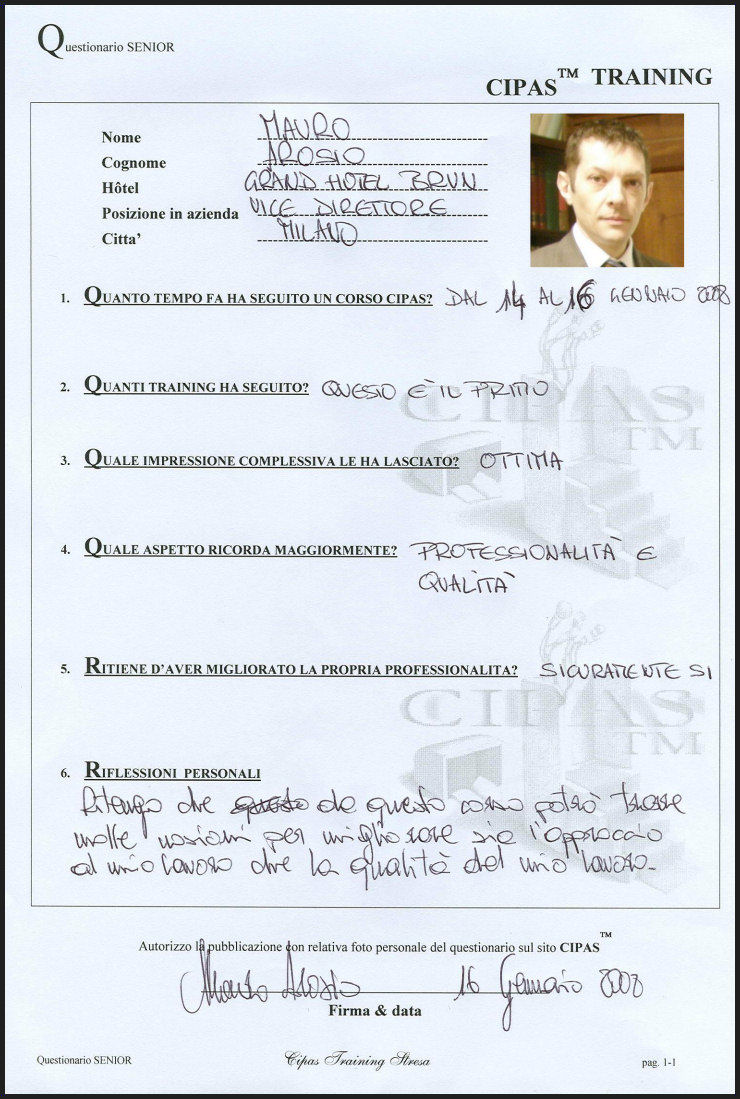 Questionario SENIOR
CIPAS™ TRAINING
Nome MAURO
Cognome AROSIO
Hôtel GRAND HOTEL BRUN
Posizione in azienda VICE DIRETTORE
Citta’ MILANO
1. QUANTO TEMPO FA HA SEGUITO UN CORSO CIPAS? DAL 14 AL 16 GENNAIO 2008
2. QUANTI TRAINING HA SEGUITO? QUESTO E' IL PRIMO
3. QUALE IMPRESSIONE COMPLESSIVA LE HA LASCIATO? OTTIMA
4. QUALE ASPETTO RICORDA MAGGIORMENTE? PROFESSIONALITÀ E
QUALITÀ
CIPAS
TM
5. RITIENE D’AVER MIGLIORATO LA PROPRIA PROFESSIONALITA? SICURAMENTE SI
CIPAS
TM
6. RIFLESSIONI PERSONALI
Ritengo che questo da questo corso potrò trarre
molte nozioni per migliorare sia l'approccio
al mio lavoro che la qualità del mio lavoro.
Autorizzo la pubblicazione con relativa foto personale del questionario sul sito CIPAS™
Mauro Arosio 16 Gennaio 2008
Firma & data
Questionario SENIOR Cipas Training Stresa pag. 1-1